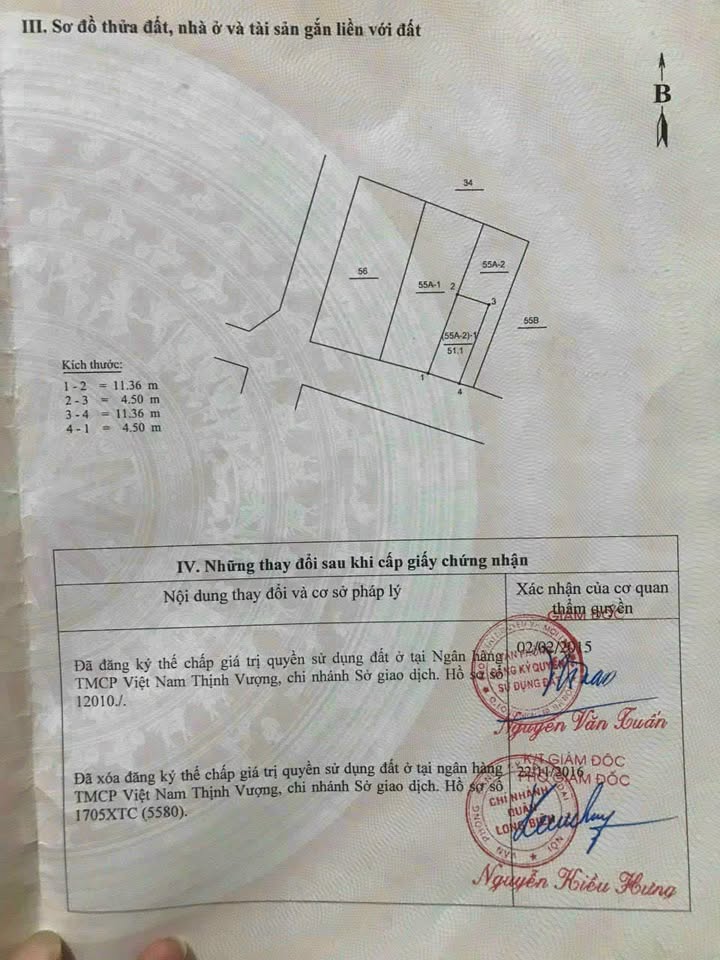 III. Sơ đồ thửa đất, nhà ở và tài sản gắn liền với đất
B
34
56
55A-1
55A-2
2
3
55B
(55A-2)-1
51.1
1
4
Kích thước:
1 - 2 = 11.36 m
2 - 3 = 4.50 m
3 - 4 = 11.36 m
4 - 1 = 4.50 m
IV. Những thay đổi sau khi cấp giấy chứng nhận
Nội dung thay đổi và cơ sở pháp lý
Xác nhận của cơ quan
thẩm quyền
GIÁM ĐỐC
02/02/2015
Đã đăng ký thế chấp giá trị quyền sử dụng đất ở tại Ngân hàng
TMCP Việt Nam Thịnh Vượng, chi nhánh Sở giao dịch. Hồ sơ số
12010./.
KÝ QUYỀN
SỬ DỤNG ĐẤT
Nguyễn Văn Tuấn
K/T GIÁM ĐỐC
22/11/2016
PHÓ GIÁM ĐỐC
Đã xóa đăng ký thế chấp giá trị quyền sử dụng đất ở tại ngân hàng
TMCP Việt Nam Thịnh Vượng, chi nhánh Sở giao dịch. Hồ sơ số
1705XTC (5580).
CHI NHÁNH
QUẬN
LONG BIÊN
Nguyễn Kiều Hưng